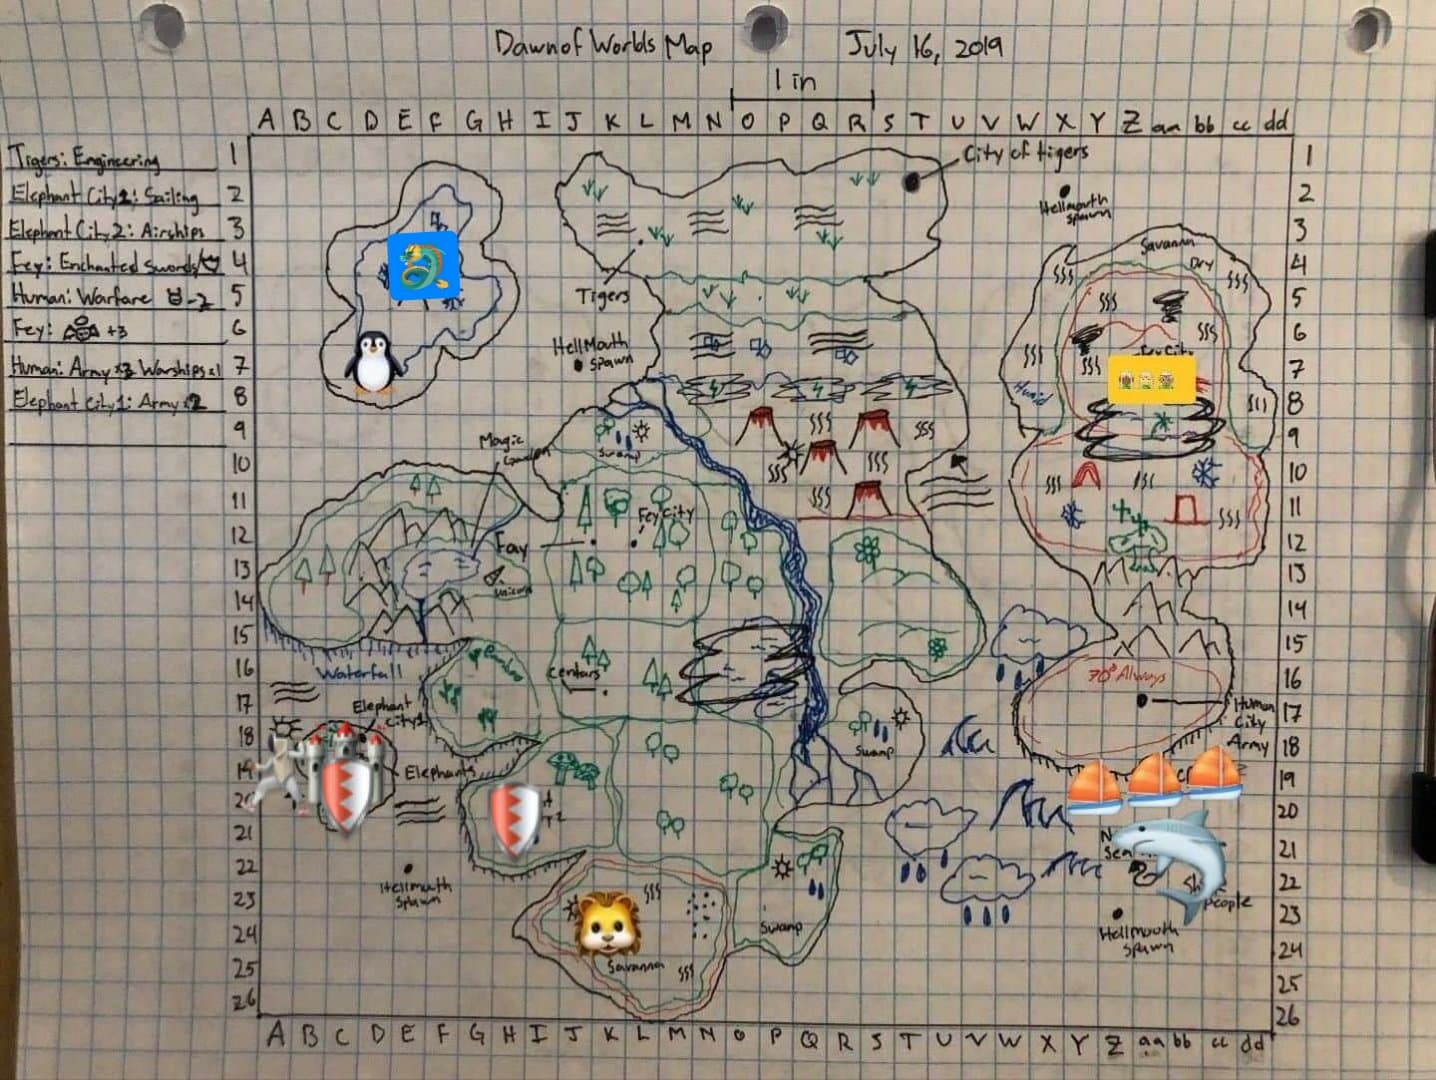 Dawn of Worlds Map July 16, 2019
1 in
A B C D E F G H I J K L M N O P Q R S T U V W X Y Z aa bb cc dd
Tigers: Engineering
Elephant City 1: Sailing
Elephant City 2: Airships
Fey: Enchanted Swords/
Human: Warfare -2
Fey: +3
Human: Army x3 Warships x1
Elephant City 1: Army x2
1
2
3
4
5
6
7
8
9
10
11
12
13
14
15
16
17
18
19
20
21
22
23
24
25
26
City of tigers
Hellmouth
Spawn
Savanna
Dry
Tigers
HellMouth
Spawn
City
Humid
Swamp
Magic
Fey City
Fay
Unicorn
Waterfall
Bamboo
Centars
70° Always
Elephant
City 1
Human
City
Army
Swamp
Elephants
Hellmouth
Spawn
Sea
People
Swamp
Hellmouth
Spawn
Savanna
1
2
3
4
5
6
7
8
9
10
11
12
13
14
15
16
17
18
19
20
21
22
23
24
25
26
A B C D E F G H I J K L M N O P Q R S T U V W X Y Z aa bb cc dd